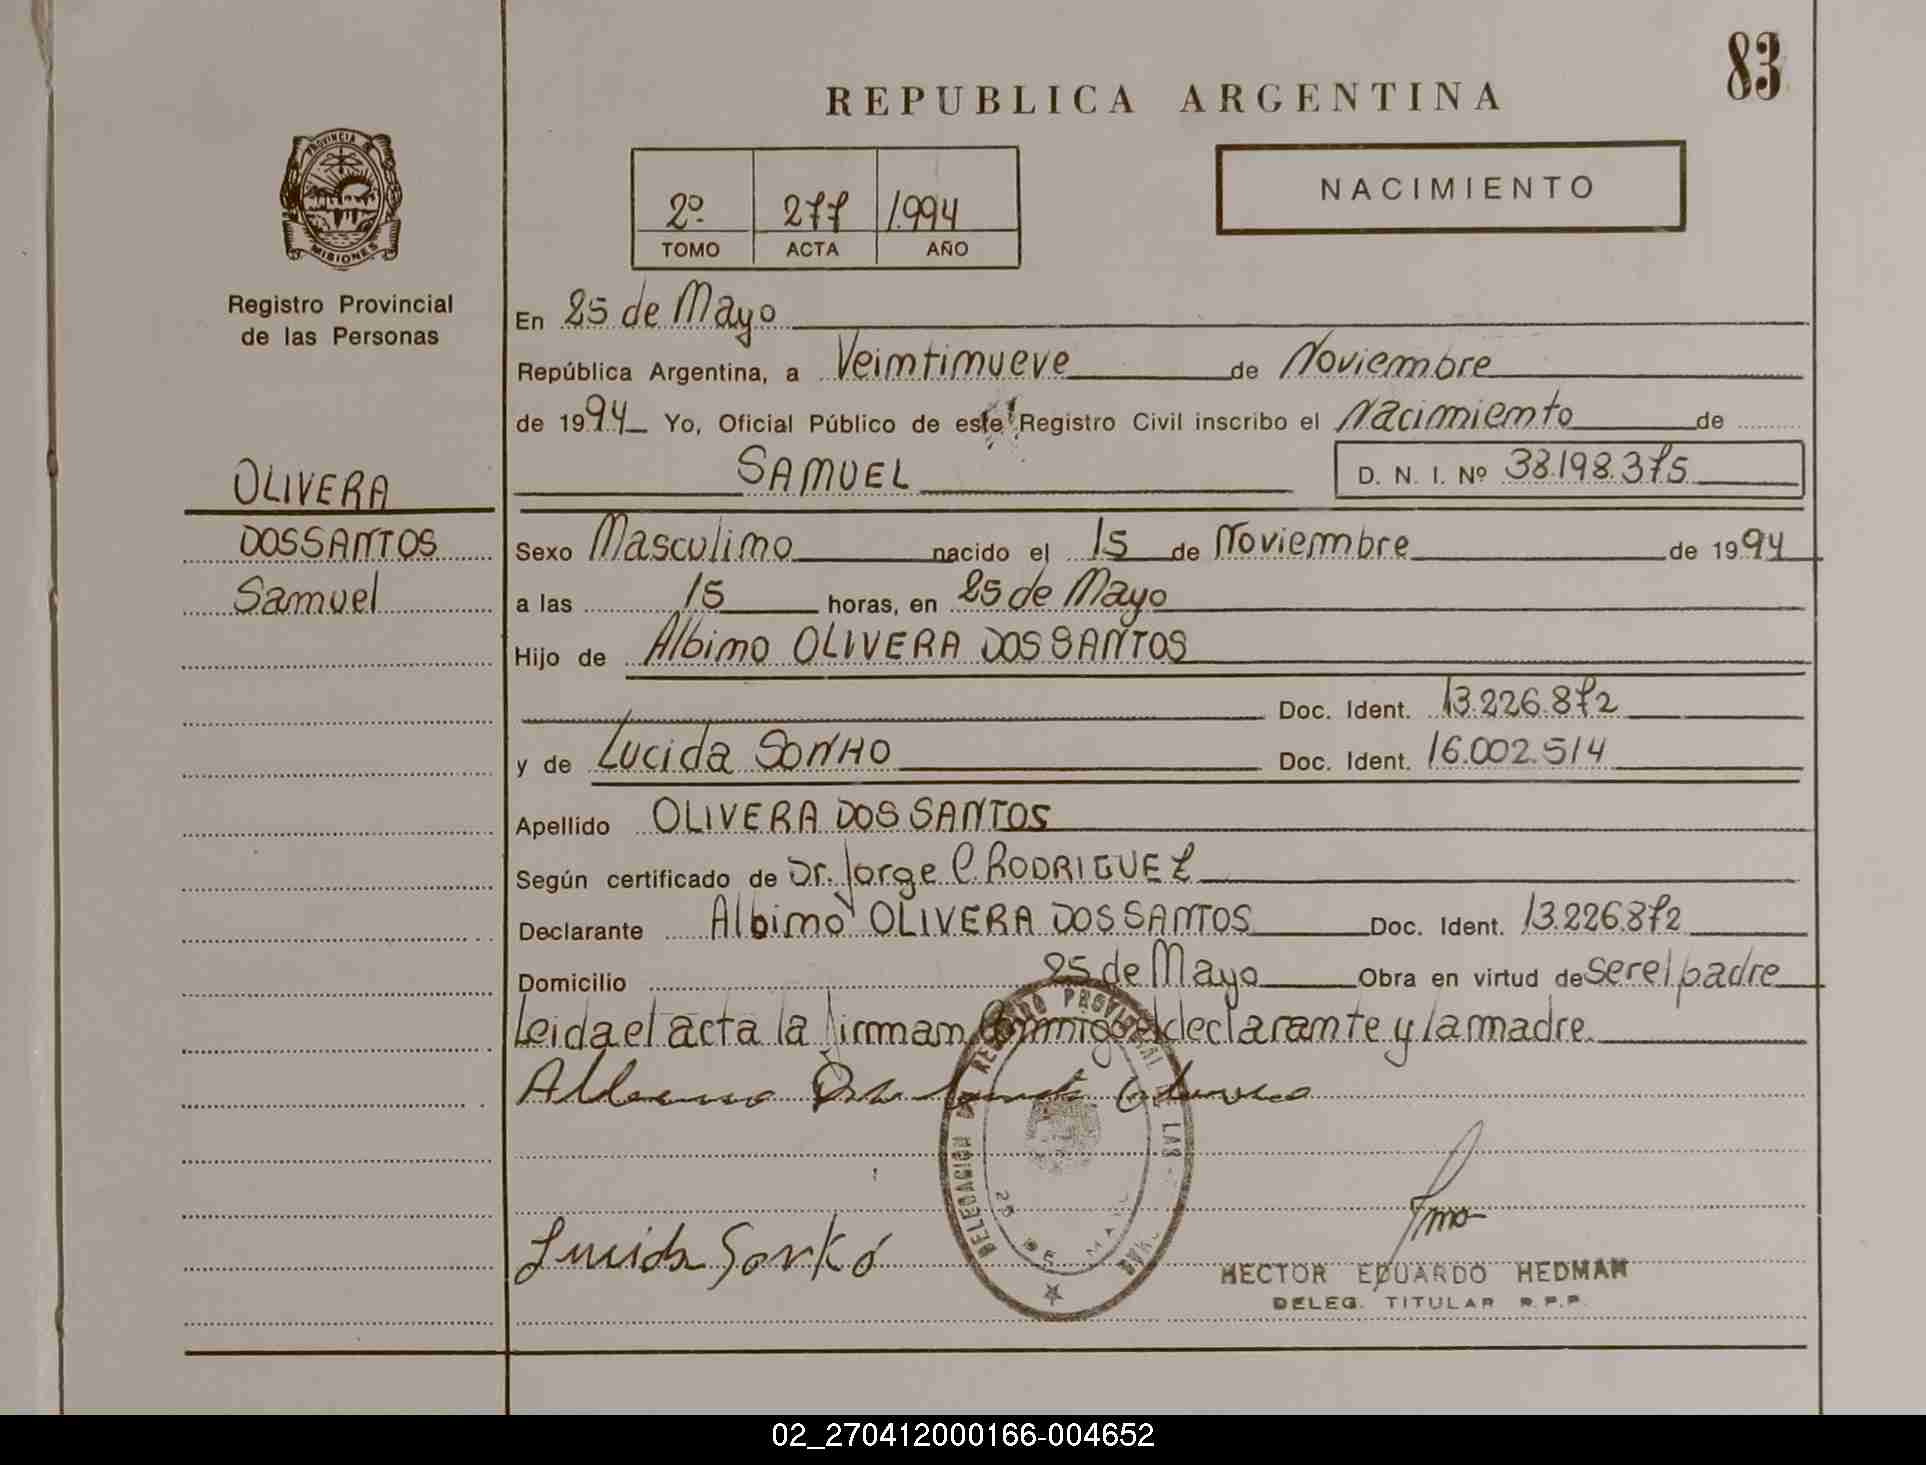 83
REPUBLICA ARGENTINA
PROVINCIA DE
MISIONES
Registro Provincial
de las Personas
2º 277 1.994
TOMO ACTA AÑO
NACIMIENTO
En 25 de Mayo
República Argentina, a Veintinueve de Noviembre
de 1994 Yo, Oficial Público de este Registro Civil inscribo el Nacimiento de
SAMUEL D. N. I. Nº 38.198.375
OLIVERA
DOSSANTOS
Samuel
Sexo Masculino nacido el 15 de Noviembre de 1994
a las 15 horas, en 25 de Mayo
Hijo de Albino OLIVERA DOS SANTOS
Doc. Ident. 13.226.872
y de Lucida SONHO Doc. Ident. 16.002.514
Apellido OLIVERA DOS SANTOS
Según certificado de Dr. Jorge C. RODRIGUEZ
Declarante Albino OLIVERA DOS SANTOS Doc. Ident. 13.226.872
Domicilio 25 de Mayo Obra en virtud de ser el padre
Leida el acta la firman conmigo el declarante y la madre.
DELEGACION DEL REGISTRO PROVINCIAL DE LAS
25 DE MAYO
Lucida Sonhó
HECTOR EDUARDO HEDMAN
DELEG. TITULAR R.P.P.
02_270412000166-004652